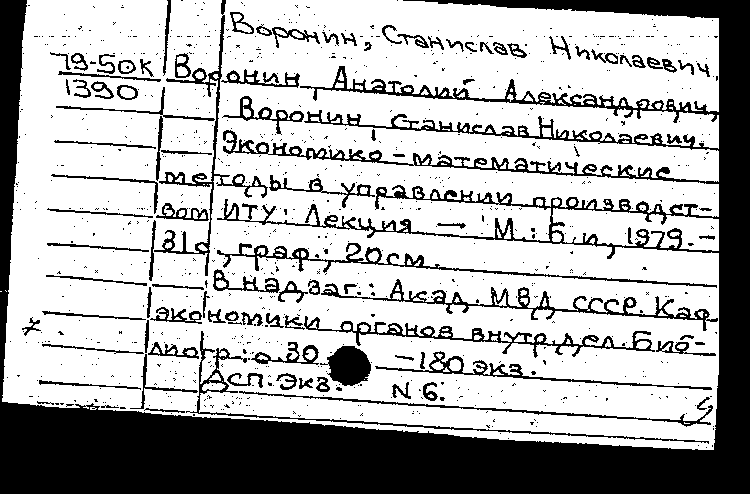 Воронин, Станислав Николаевич.
79-50К Воронин, Анатолий Александрович,
1390
Воронин, Станислав Николаевич.
Экономико-математические
методы в управлении производст-
вом ИТУ: Лекция — М.: Б.и., 1979.-
31с., граф.; 20см.
В надзаг.: Акад. МВД СССР. Каф.
экономики органов внутр.дел. Биб-
лиогр.: с. 30 -180 экз.
Дсп. Экз. N 6.